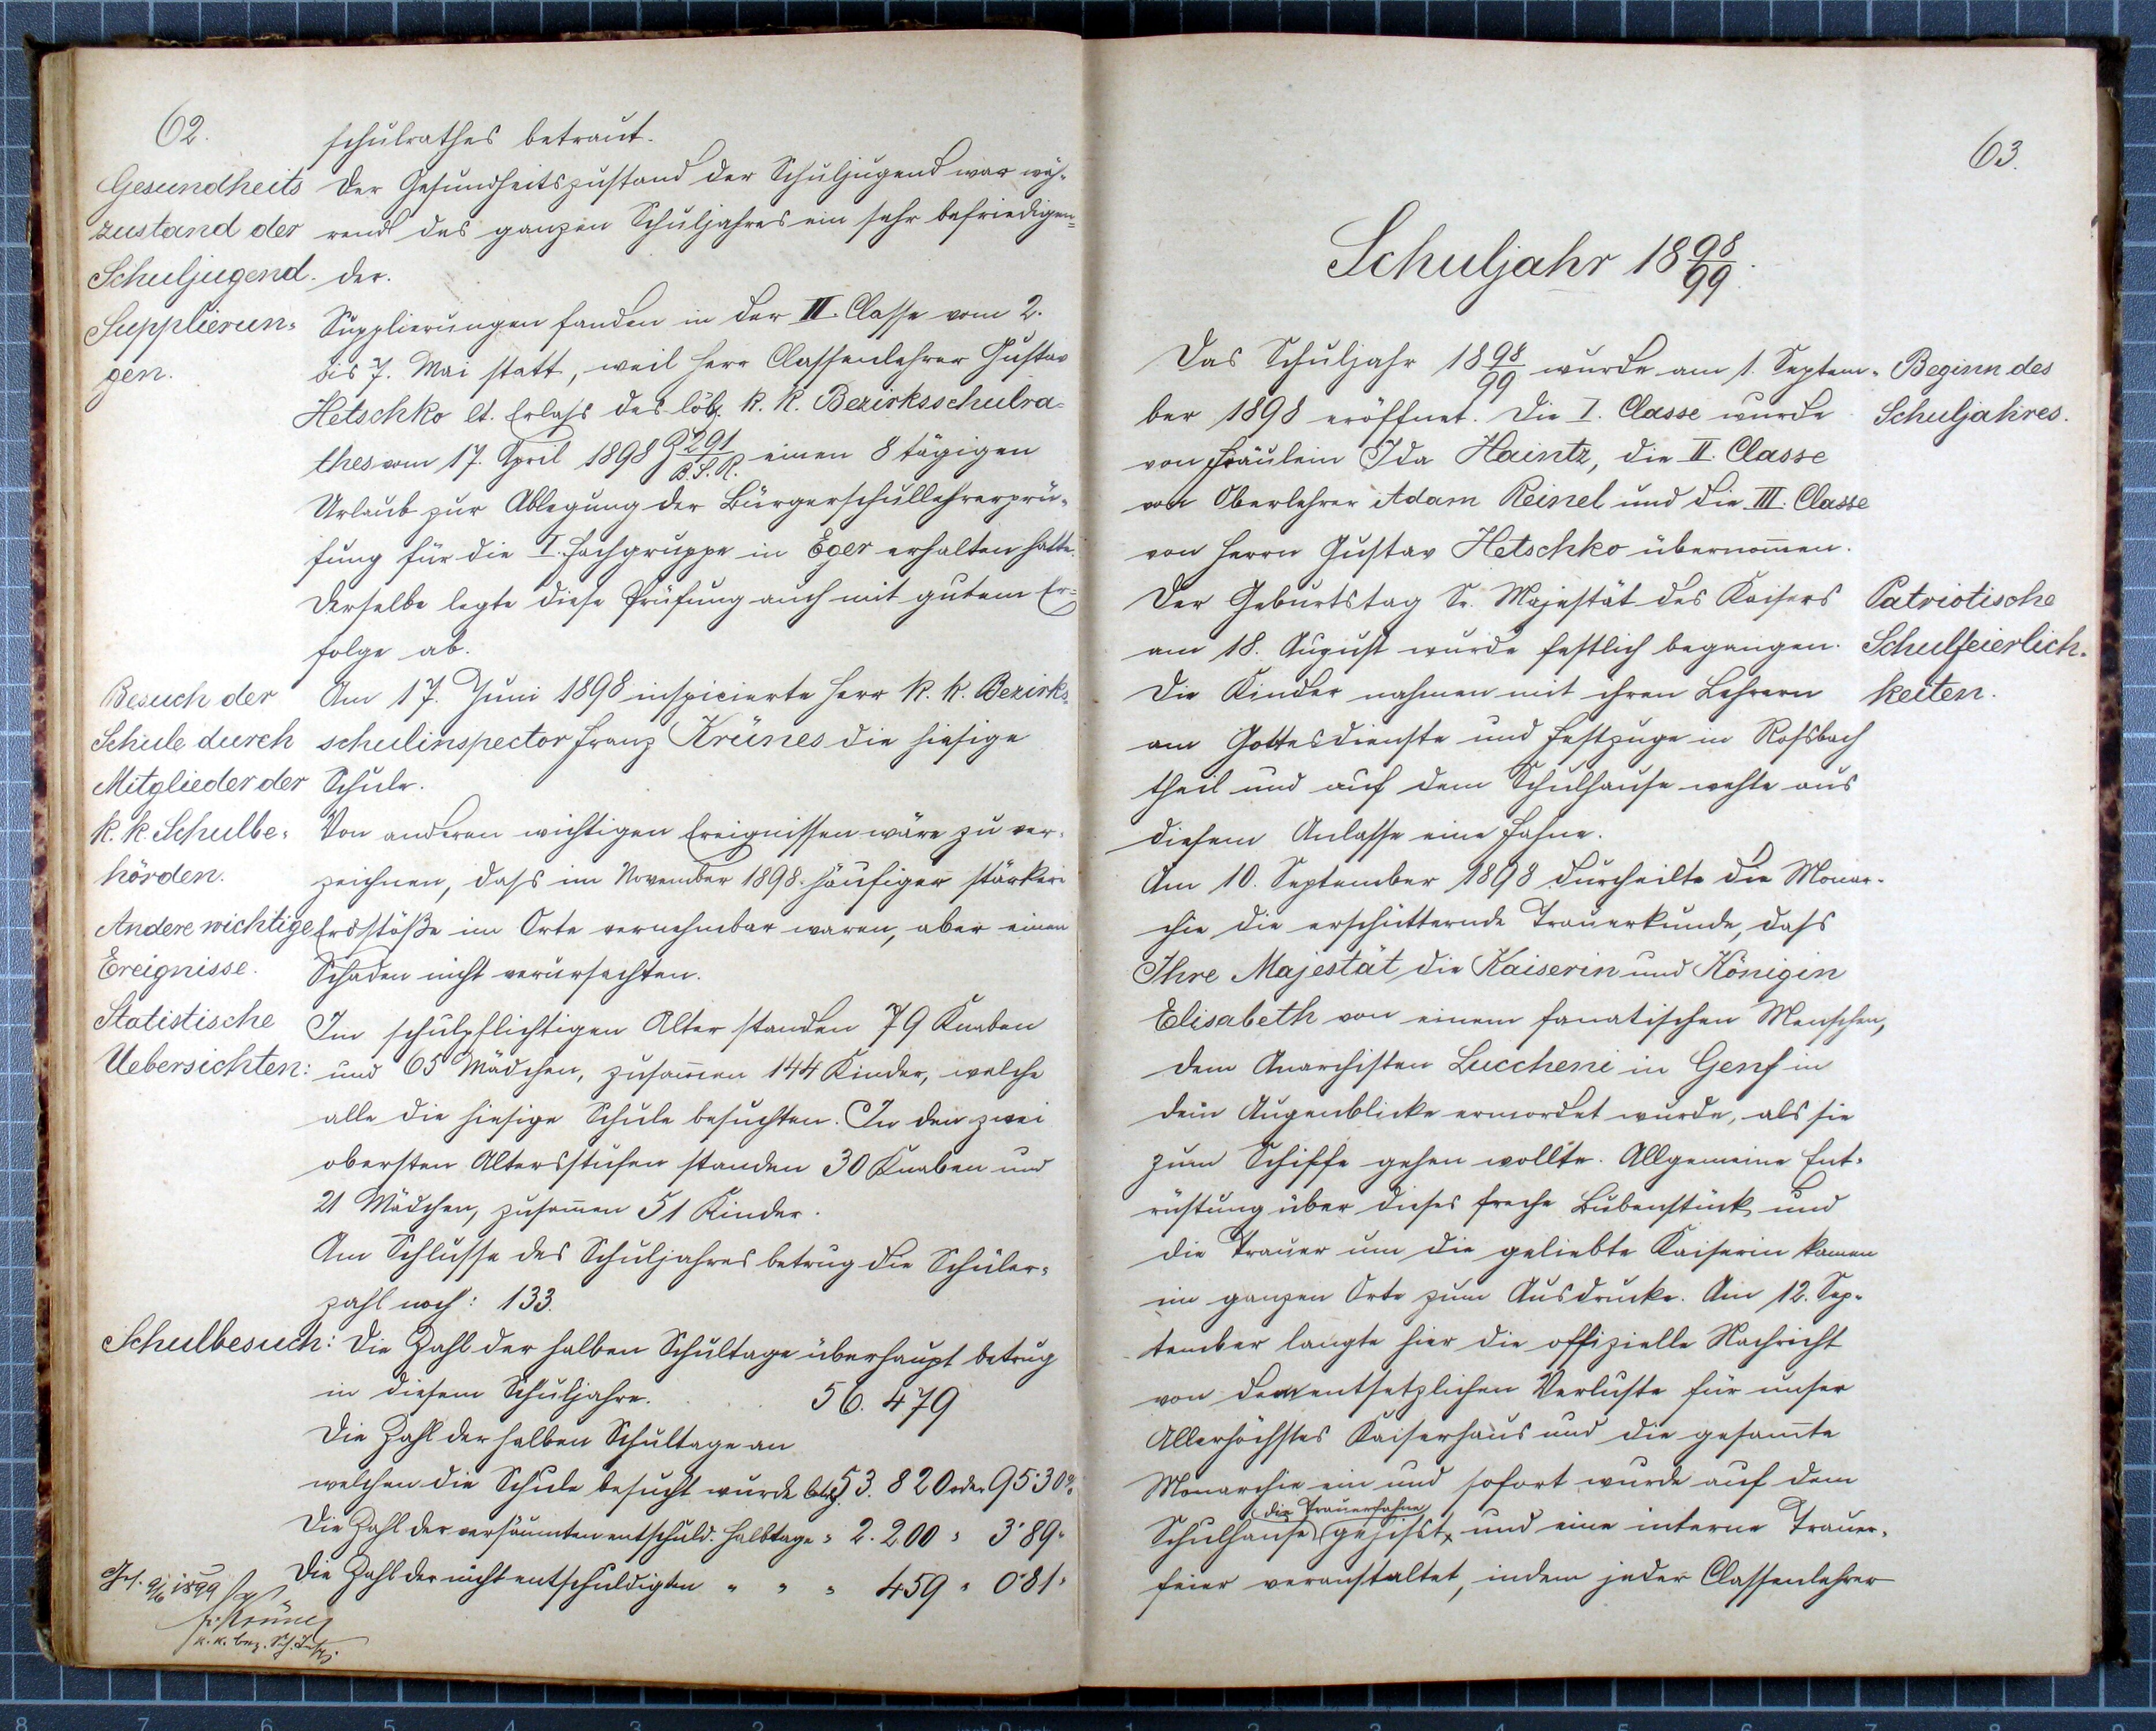 62.
schulrathes betraut.
Gesundheits
zustand der
Schuljugend.
Der Gesundheitszustand der Schuljugend war wäh-
rend des ganzen Schuljahres ein sehr befriedigen=
der.
Supplierun=
gen.
Supplierungen fanden in der II. Classe vom 2.
bis 7. Mai statt, weil Herr Classenlehrer Gustav
Hetschko lt. Erlass des löbl. k. k. Bezirksschulra-
thes vom 17. April 1898 Z 291/B.S.R. einen 8 tägigen
Urlaub zur Ablegung der Bürgerschullehrerprü-
fung für die I. Fachgruppe in Eger erhalten hatte.
Derselbe legte diese Prüfung auch mit gutem Er=
folge ab.
Besuch der
Schule durch
Mitglieder der
k. k. Schulbe=
hörden.
Am 17. Juni 1898 inspicierte Herr k. k. Bezirks=
schulinspector Franz Krünes die hiesige
Schule.
Andere wichtige
Ereignisse.
Von anderen wichtigen Ereignissen wäre zu ver-
zeichnen, dass im November 1898 häufiger stärkere
Erdstöße im Orte vernehmbar waren, aber einen
Schaden nicht verursachten.
Statistische
Uebersichten:
Im schulpflichtigen Alter standen 79 Knaben
und 65 Mädchen, zusam̄en 144 Kinder, welche
alle die hiesige Schule besuchten. In den zwei
obersten Altersstufen standen 30 Knaben und
21 Mädchen, zusam̄en 51 Kinder.
Am Schlusse des Schuljahres betrug die Schüler=
zahl noch: 133.
Schulbesuch: Die Zahl der halben Schultage überhaupt betrug
in diesem Schuljahre. 56.479
Die Zahl der halben Schultage an
welchen die Schule besucht wurde betrg. 53.820 oder 95·30%
Die Zahl der versäumten entschuld. Halbtage " 2.200 " 3·89"
Die Zahl der nicht entschuldigten " " " 459 " 0·81"
Ges. 9/6 1899
Fr. Krünes
k. k. Bez. Sch. Insp.
63.
Schuljahr 1898/99.
Das Schuljahr 1898/99 wurde am 1. Septem-
ber 1898 eröffnet. Die I. Classe wurde
von Fräulein Ida Haintz, die II. Classe
von Oberlehrer Adam Reinel und die III. Classe
von Herrn Gustav Hetschko übernom̄en.
Beginn des
Schuljahres.
Der Geburtstag Sr. Majestät des Kaisers
am 18. August wurde festlich begangen.
Die Kinder nahmen mit ihren Lehrern
am Gottesdienste und Festzuge in Rossbach
theil und auf dem Schulhause wehte aus
diesem Anlasse eine Fahne.
Patriotische
Schulfeierlich-
keiten.
Am 10. September 1898 durcheilte die Monar-
chie die erschütternde Trauerkunde, dass
Ihre Majestät die Kaiserin und Königin
Elisabeth von einem fanatischen Menschen,
dem Anarchisten Luccheni in Genf in
dem Augenblicke ermordet wurde, als sie
zum Schiffe gehen wollte. Allgemeine Ent-
rüstung über dieses freche Bubenstück und
die Trauer um die geliebte Kaiserin kamen
im ganzen Orte zum Ausdrucke. Am 12. Sep-
tember langte hier die offizielle Nachricht
von dem entsetzlichen Verluste für unser
Allerhöchstes Kaiserhaus und die gesam̄te
Monarchie ein und sofort wurde auf dem
die Trauerfahne
Schulhause gehisst und eine interne Trauer-
feier veranstaltet, indem jeder Classenlehrer